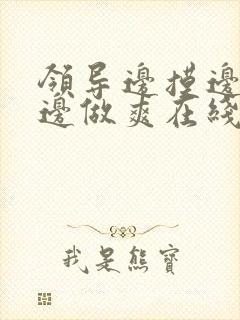 領导邊摸邊
邊做爽在綫
我是熊寶